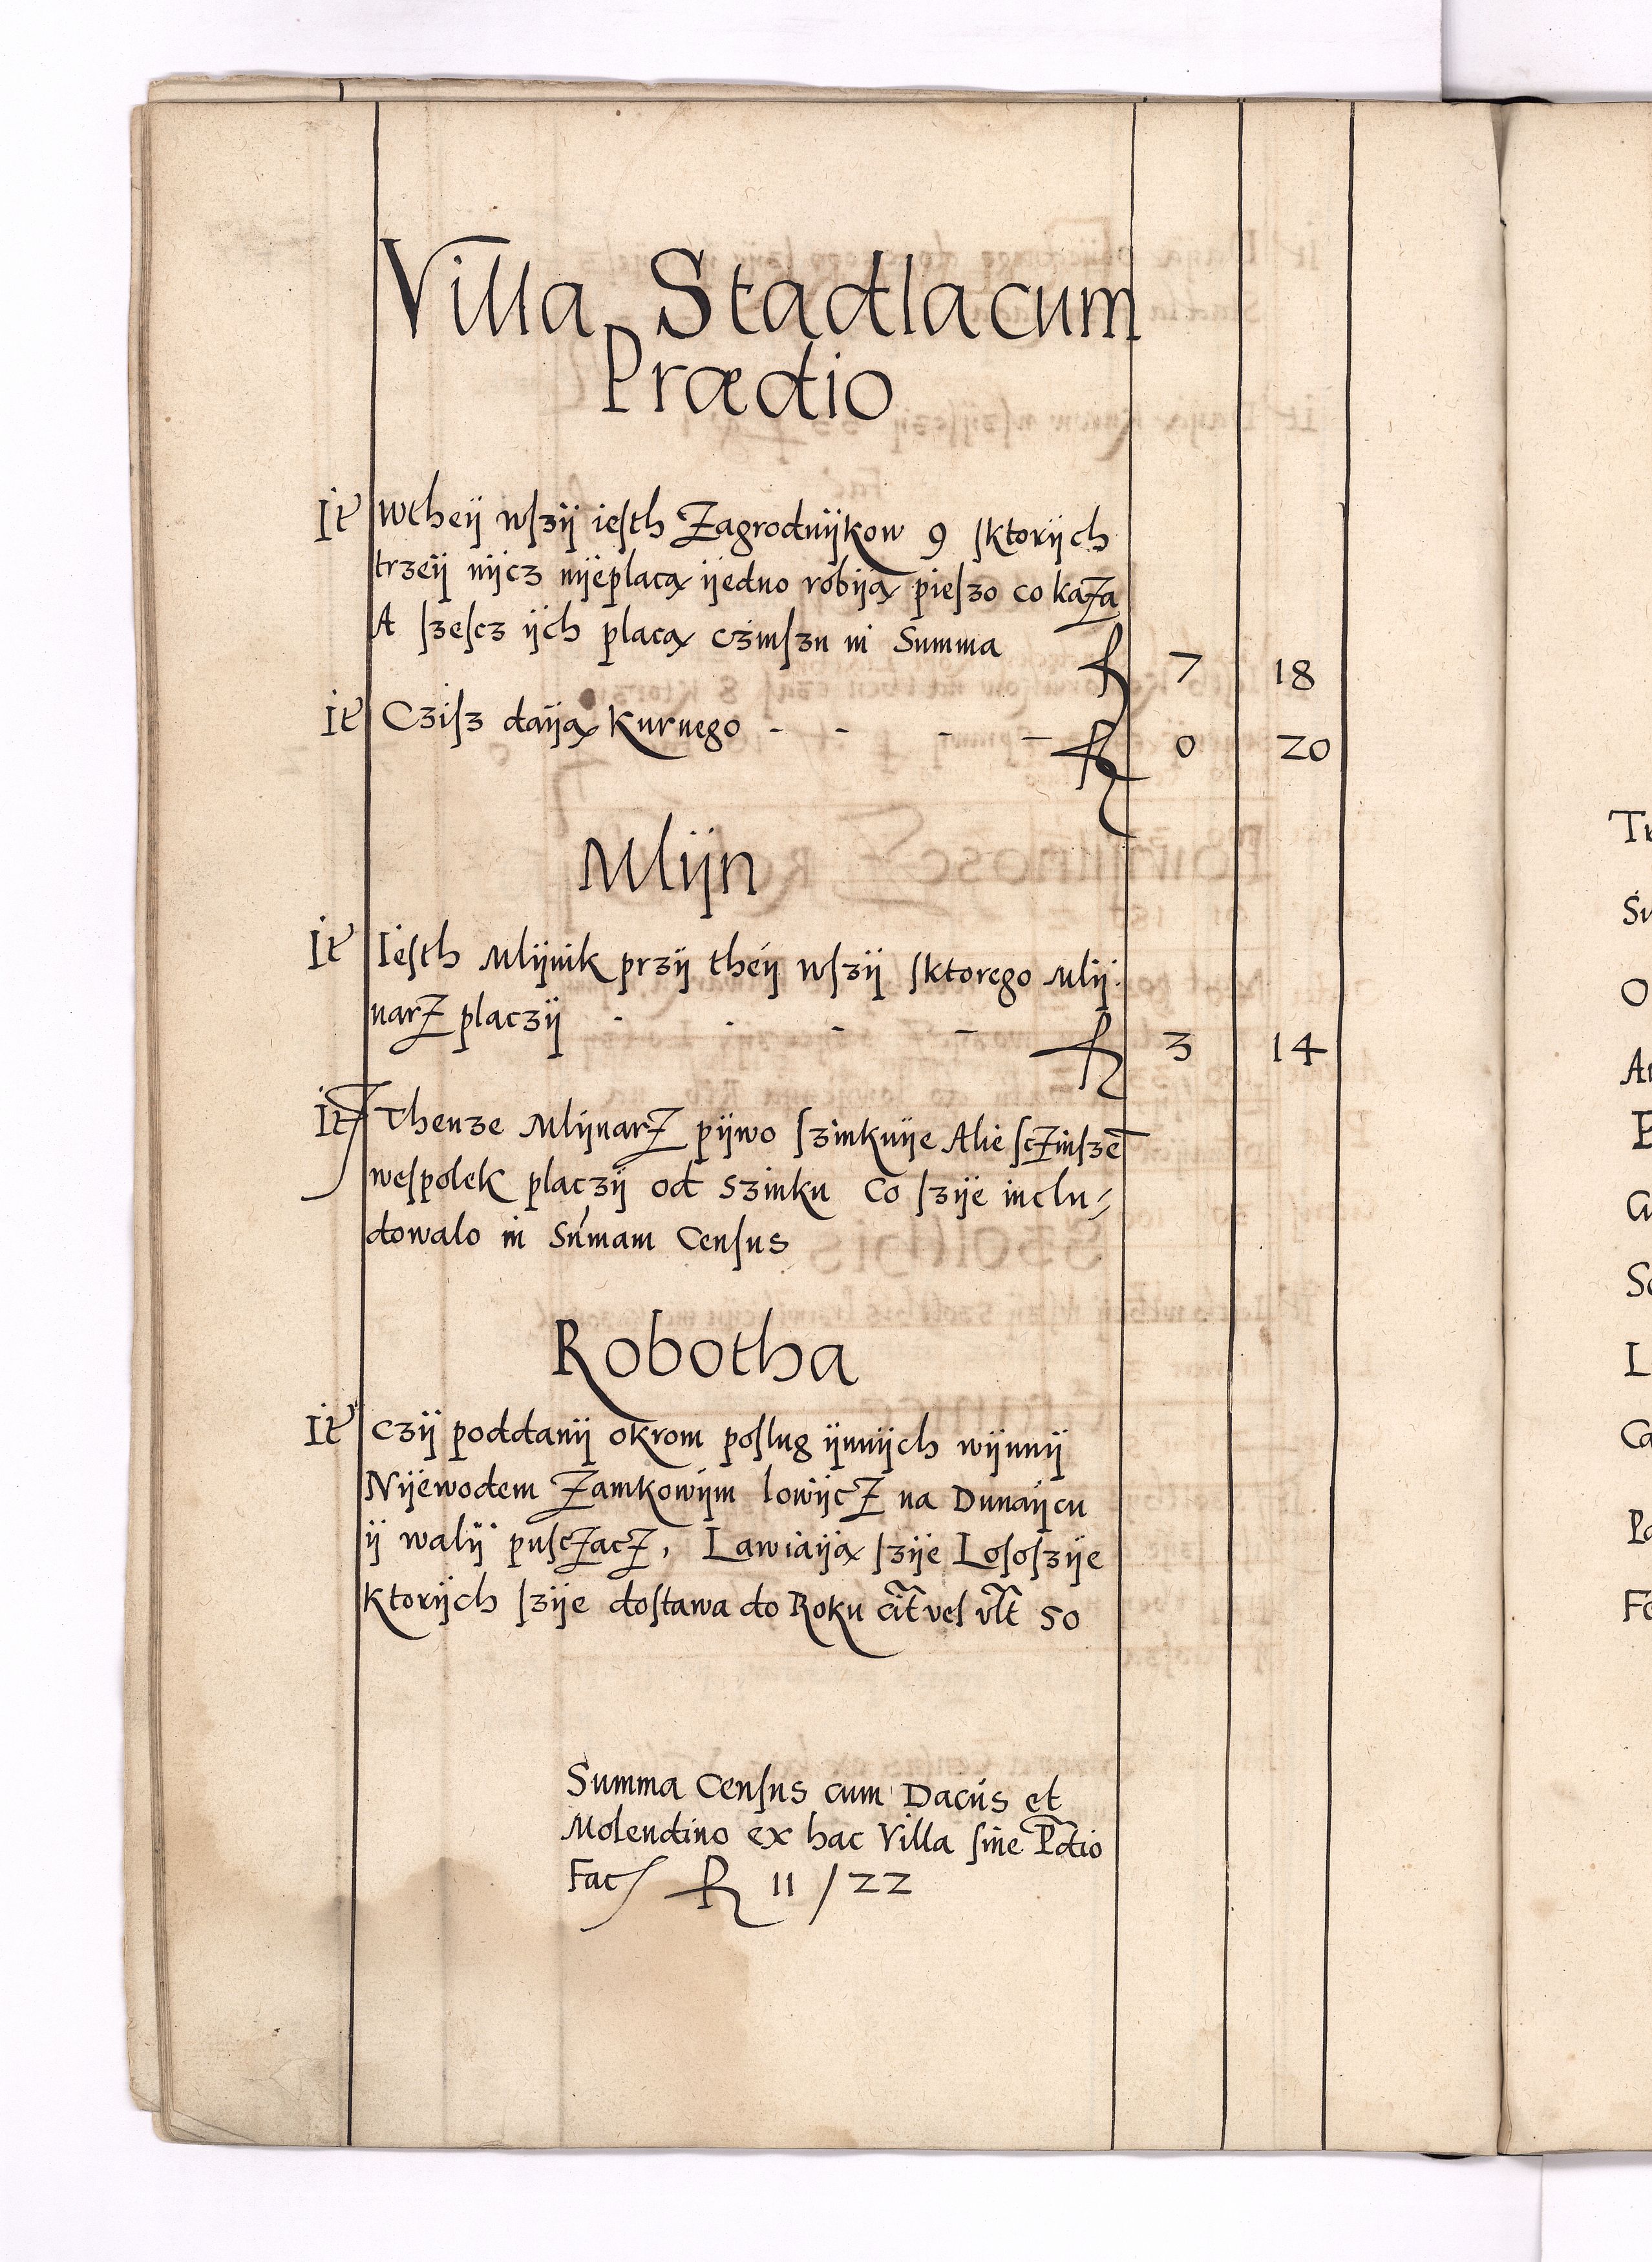 Villa Stadlacum
Prædio
It Wtheÿ wſzÿ ieſth Zagrodnÿkow 9 ſktorÿch
trzeÿ nÿcz nÿeplacą ÿedno robÿą pieſzo co kaza
A ſzeſcz ÿch placą czinſzu in Summa 7 18
It Cziſz daÿą Kurnego - - - - 0 20
Mlÿn
It Ieſth Mlÿnik przÿ theÿ wſzÿ ſktorego Mlÿ-
narz placzÿ - - - - 3 14
It Thenze Mlÿnarz pÿwo ſzinkuÿe Alie ſczinſzē
weſpolek placzÿ od Szinku Co ſzÿe inclu-
dowalo in Sumam Cenſus
Robotha
It Czÿ poddanÿ okrom poſlug ÿnnÿch wÿnnÿ
Nÿewodem Zamkowÿm lowÿcz na Dunaÿcu
ÿ walÿ puſczacz, Lawiaÿą ſzÿe Loſoſzÿe
Ktorÿch ſzÿe doſtawa do Roku cit vel vlt 50
Summa Cenſus cum Daciis et
Molendino ex hac Villa ſine Pdio
Fac 11 / 22
Tr
Su
O
Ar